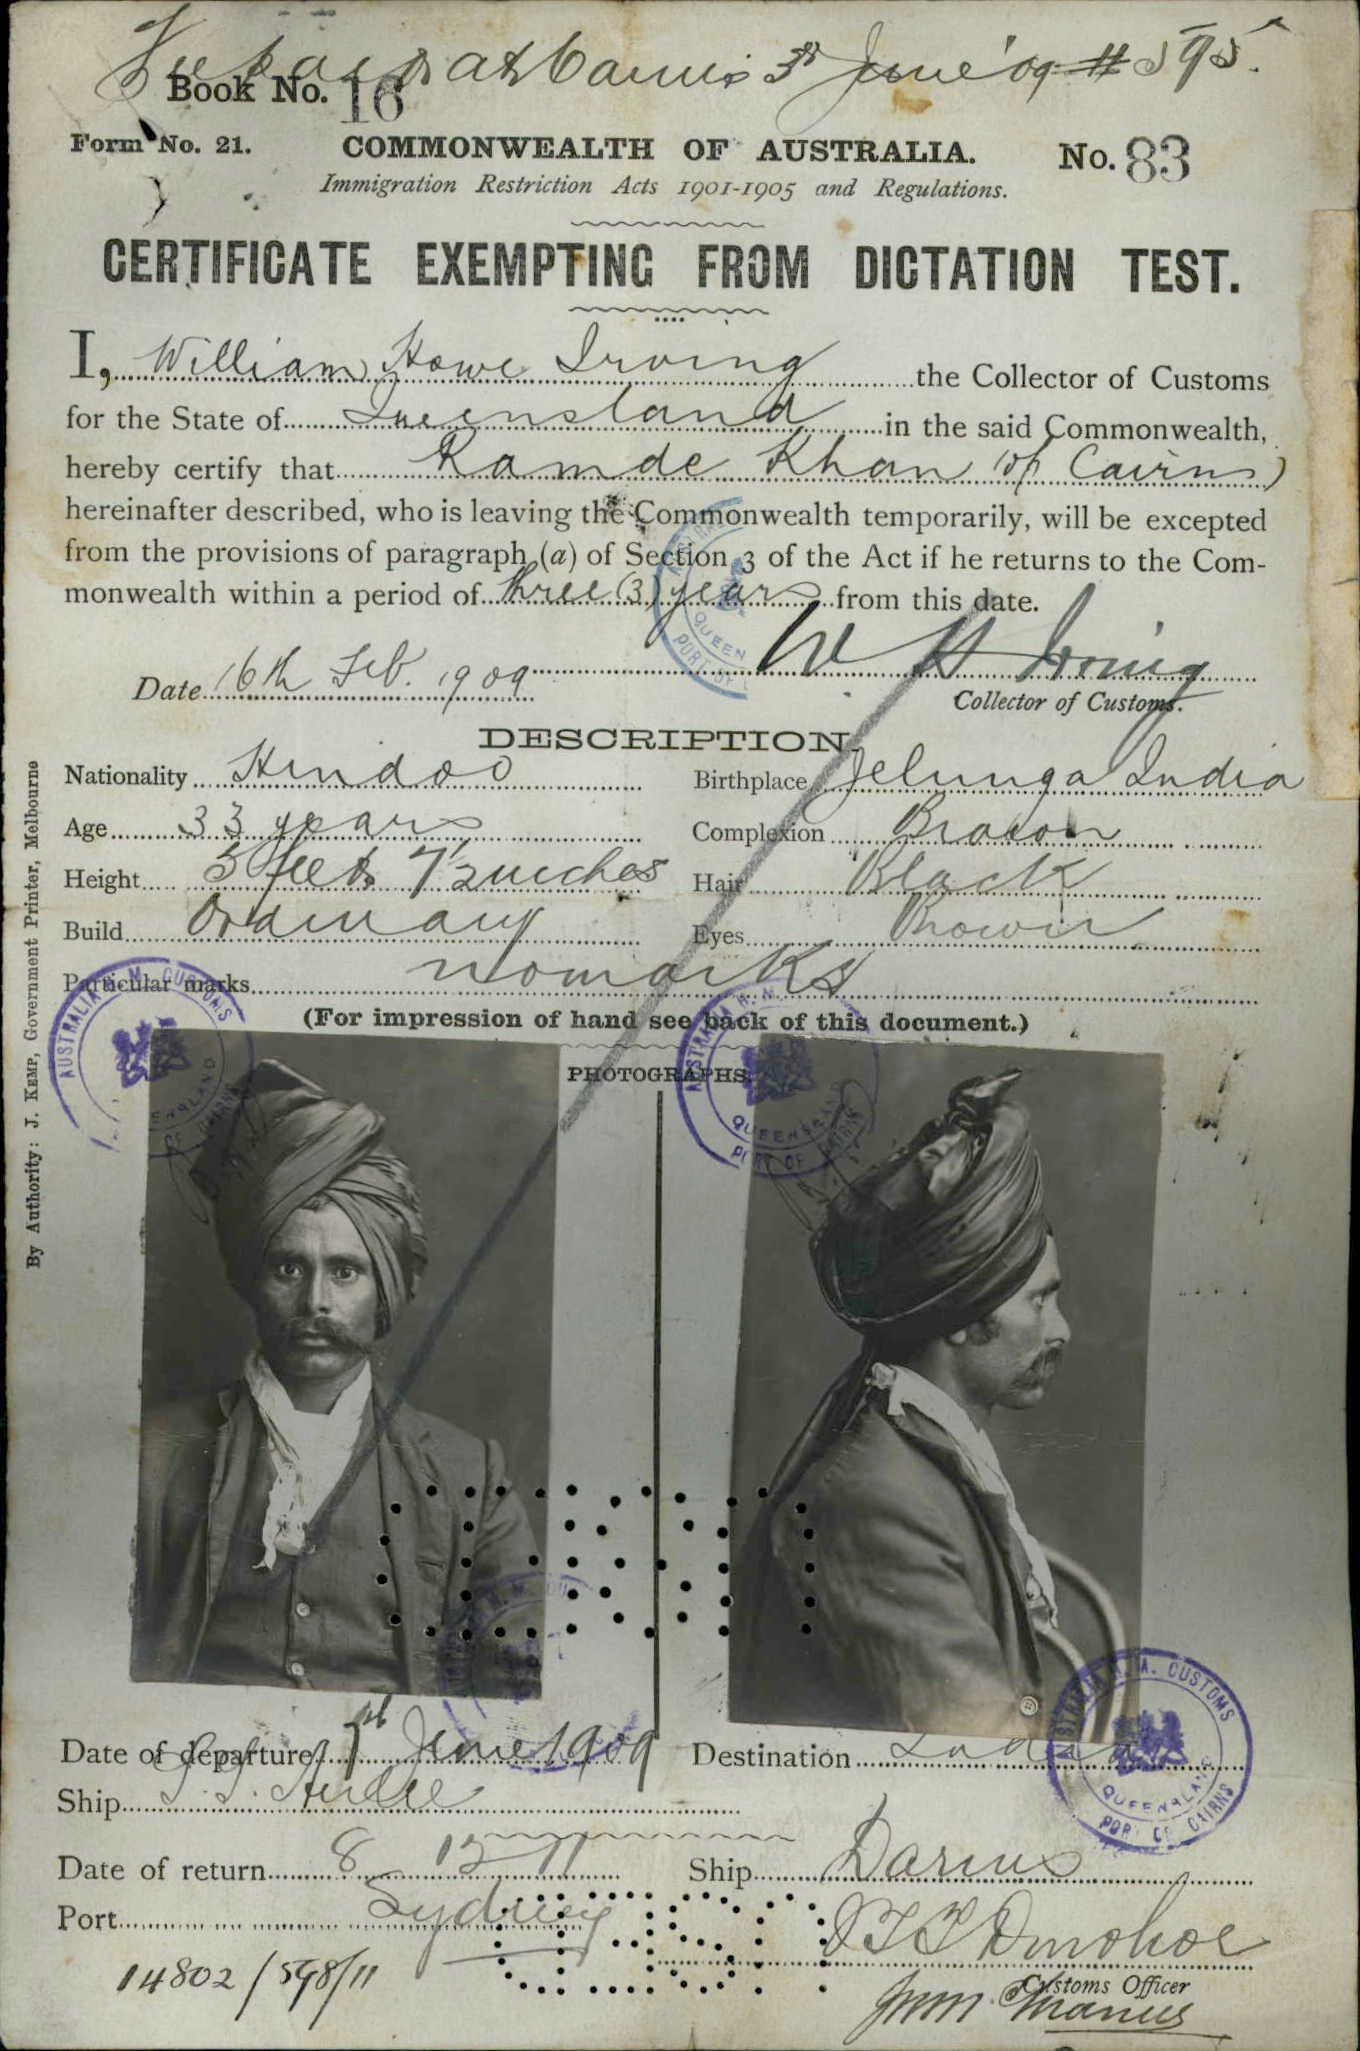 at Cairns 3rd June '09 # 595.
Book No. 16
Form No. 21. COMMONWEALTH OF AUSTRALIA. No. 83
Immigration Restriction Acts 1901-1905 and Regulations.
CERTIFICATE EXEMPTING FROM DICTATION TEST.
I, William Howe Irving the Collector of Customs
for the State of Queensland in the said Commonwealth,
hereby certify that Ramde Khan (of Cairns)
hereinafter described, who is leaving the Commonwealth temporarily, will be excepted
from the provisions of paragraph (a) of Section 3 of the Act if he returns to the Com-
monwealth within a period of three (3) years from this date.
W H Irving
Date 16th Feb. 1909
Collector of Customs.
DESCRIPTION.
Nationality Hindoo Birthplace Jelunga India
Age 33 years Complexion Brown
Height 5 feet 7½ inches Hair Black
Build Ordinary Eyes Brown
Particular marks no marks
(For impression of hand see back of this document.)
PHOTOGRAPHS.
AUSTRALIA H. M. CUSTOMS
QUEENSLAND
PORT OF CAIRNS
AUSTRALIA H. M.
QUEENSLAND
PORT OF CAIRNS
By Authority: J. KEMP, Government Printer, Melbourne
Date of departure 7th June 1909 Destination India
Ship
AUSTRALIA H. M. CUSTOMS
QUEENSLAND
PORT OF CAIRNS
Date of return 8 12 11 Ship Darius
Port Sydney
Donohoe
14802/598/11
Customs Officer